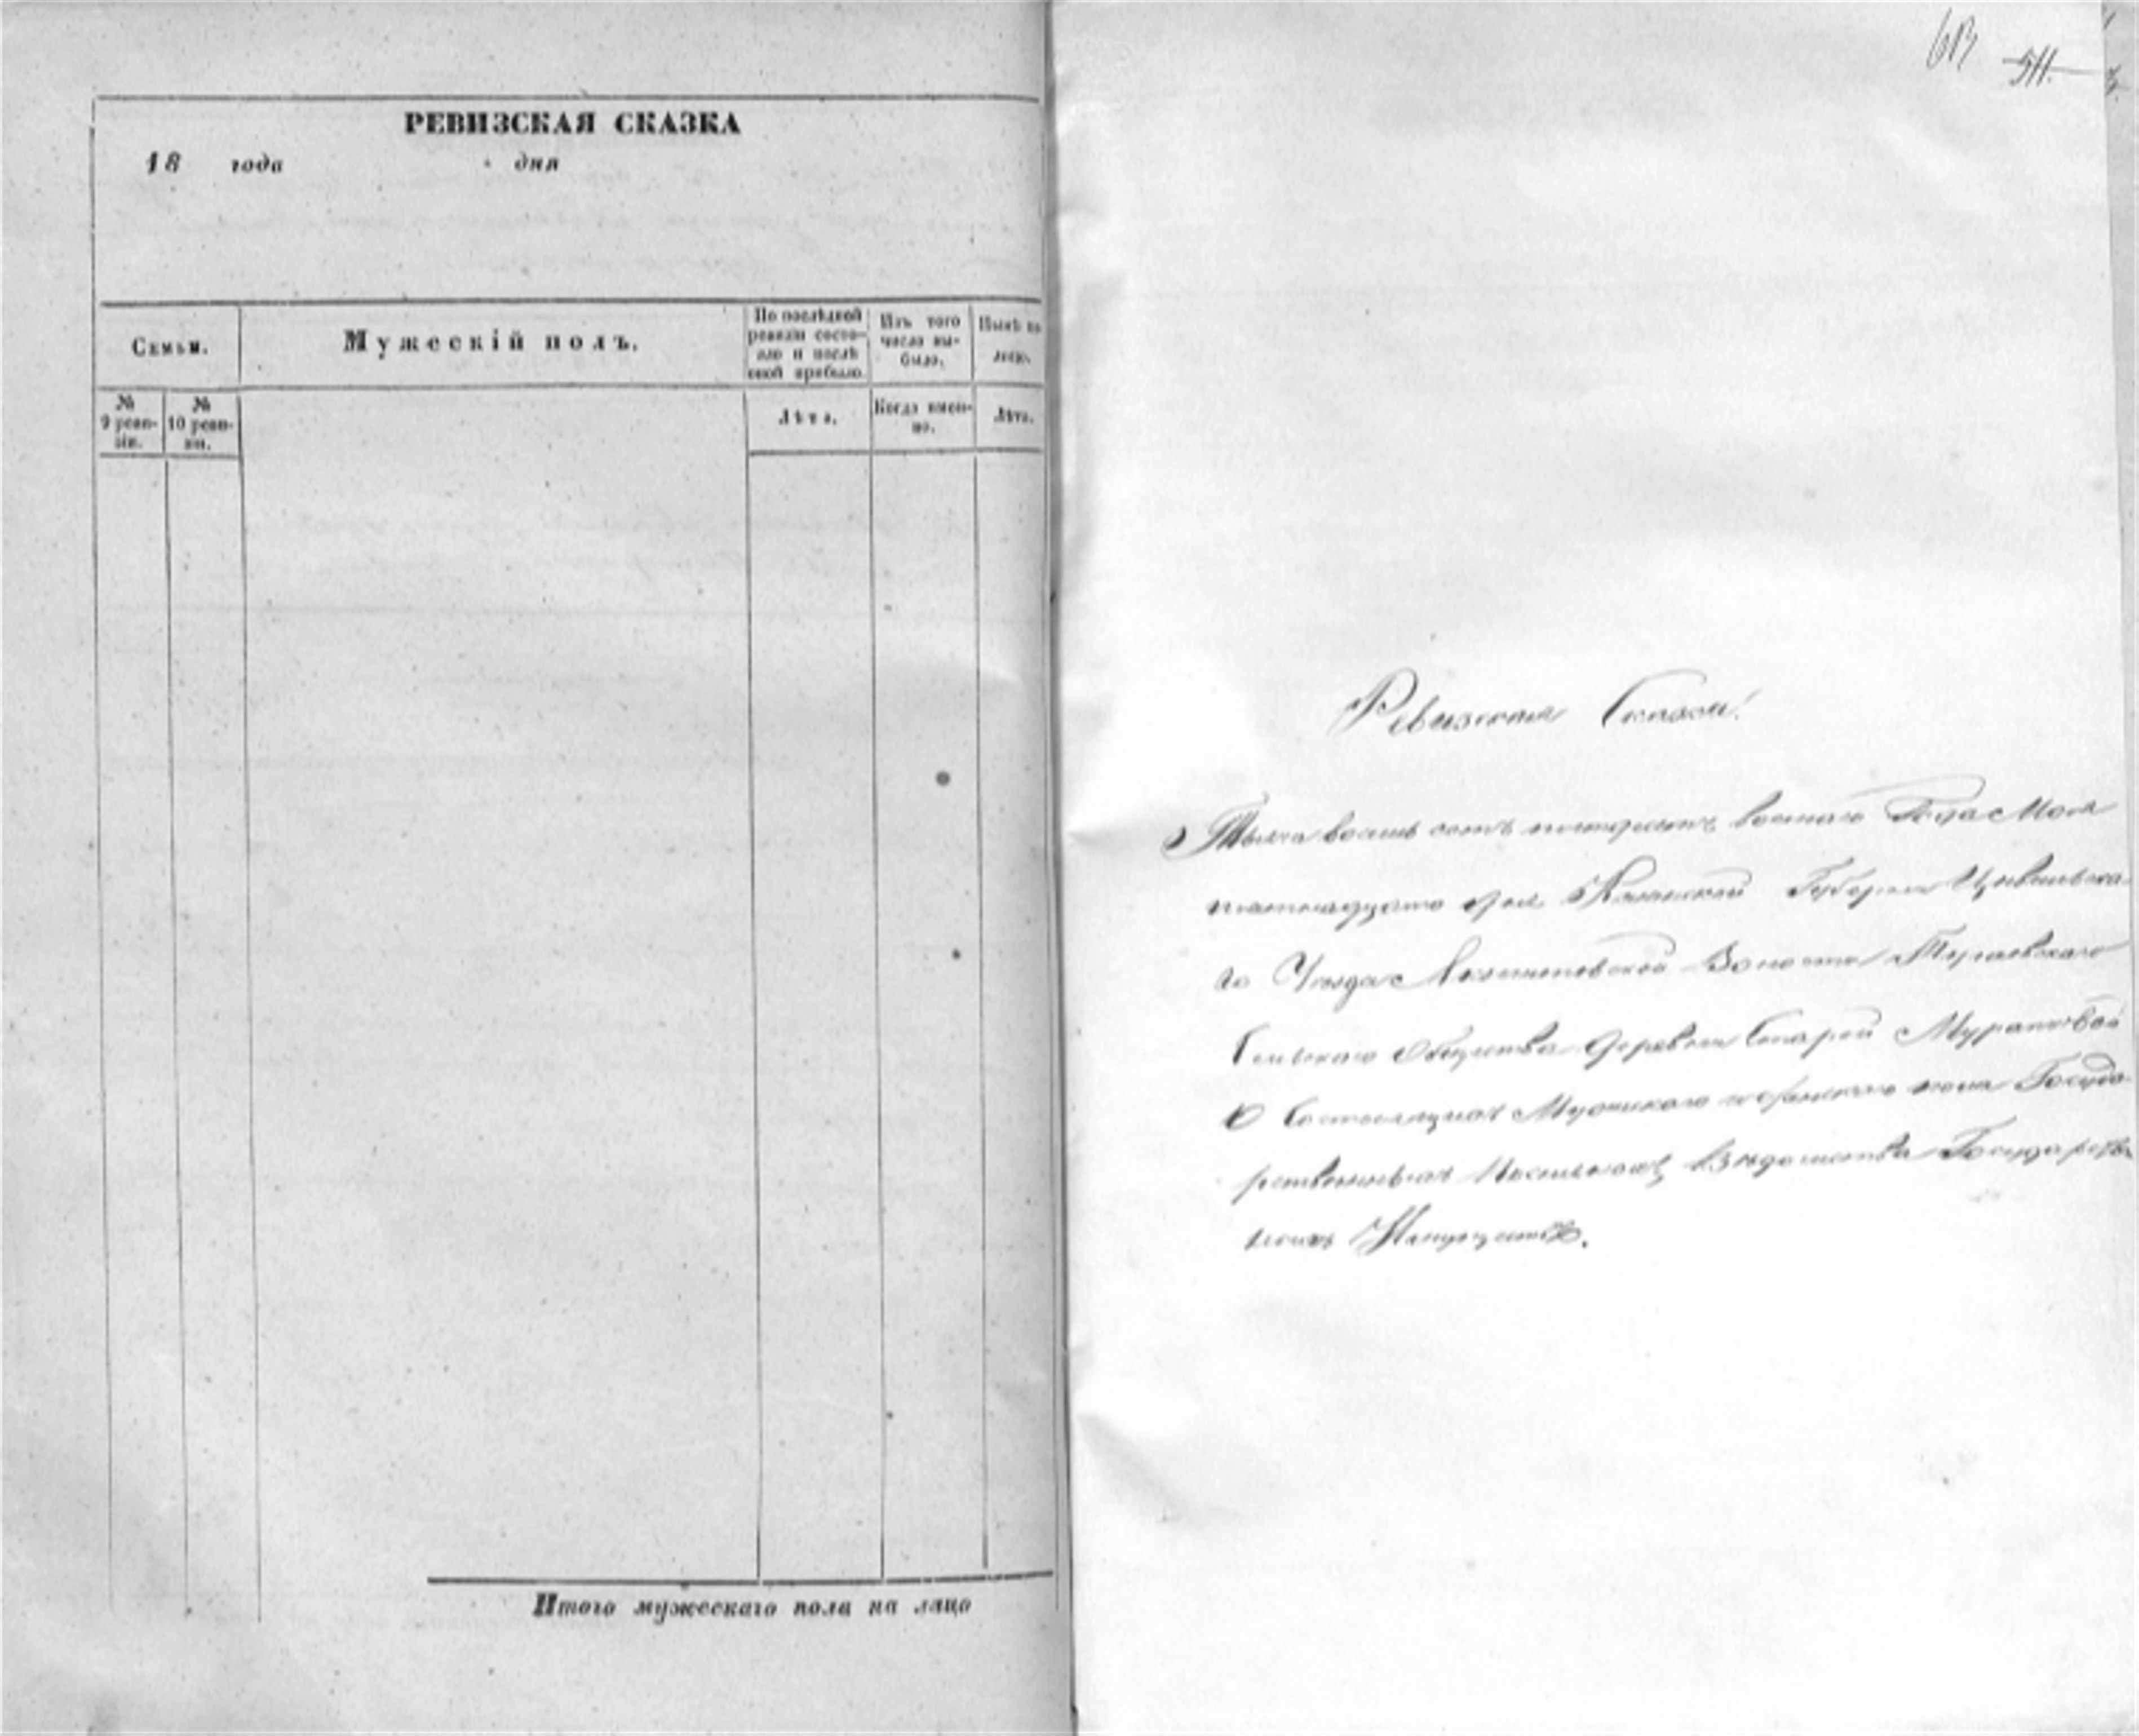 РЕВИЗСКАЯ СКАЗКА
18 года дня
Семьи.
Мужескій полъ.
По послѣдней ревизіи состояло и послѣ оной прибыло.
Изъ того числа выбыло.
Нынѣ на лицо.
№ 9 ревизіи.
№ 10 ревизіи.
Лѣта.
Когда именно.
Лѣта.
Итого мужескаго пола на лицо
511.
Ревизская Сказка!
Тысяча восемь сотъ пятьдесятъ восьмаго Года Мая
пятнадцато дня Казанской Губерніи Цивильска-
го Уезда Волости
Сельскаго Общества Деревни Старой Муратовой
О Состоящихъ Мужескаго и женскаго пола Госуда-
рственныхъ Ведомства Государстве-
нныхъ Имуществъ.